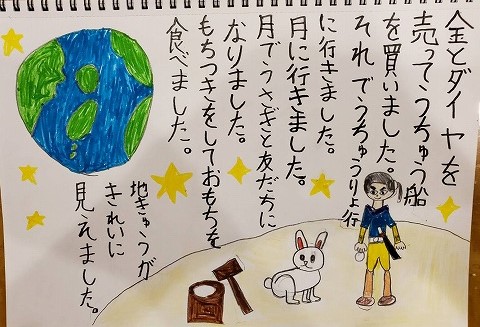 金とダイヤを
売ってうちゅう船
を買いました。
それでうちゅうりょ行
に行きました。
月に行きました。
月でうさぎと友だちに
なりました。
もちつきをしておもちを
食べました。
地きゅうが
きれいに
見えました。